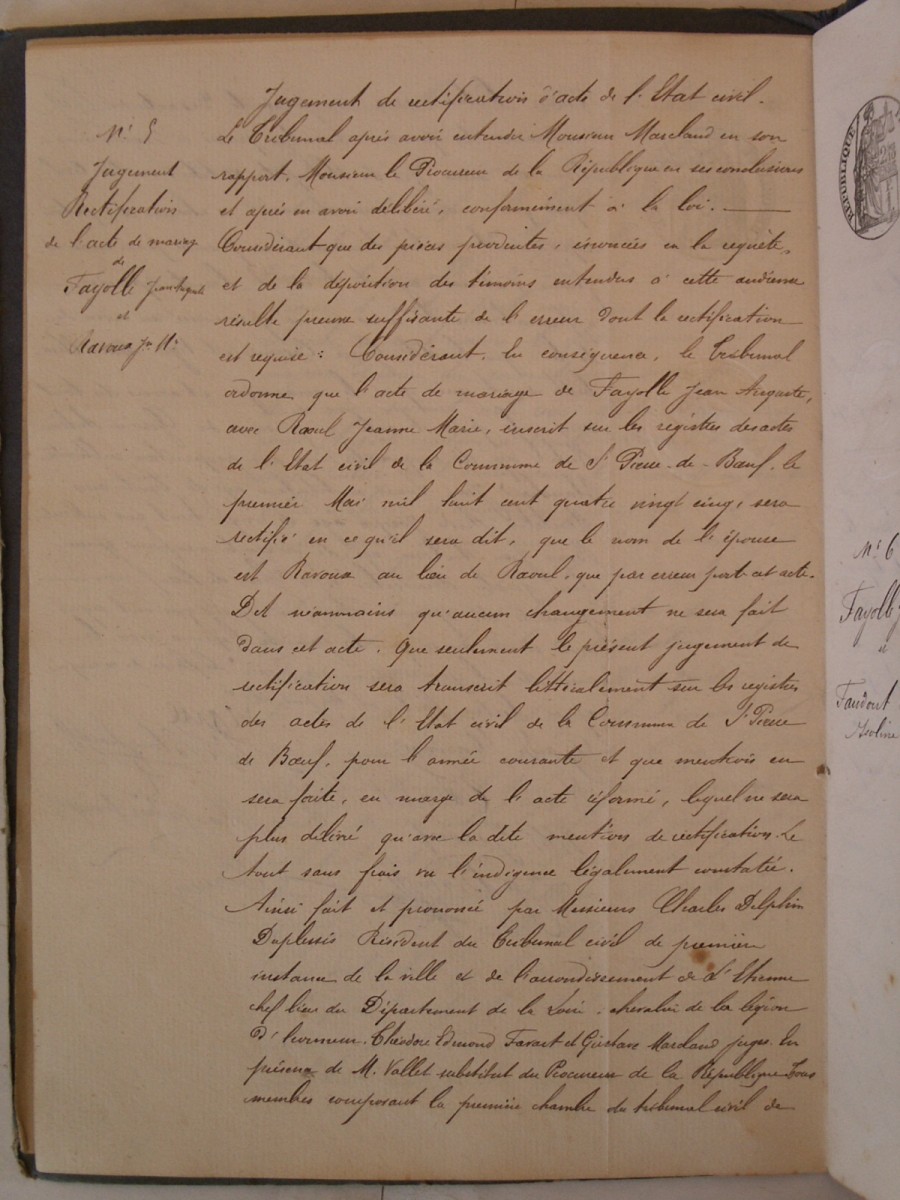 Jugement de rectification d'acte de l'Etat civil.
N° 5
Jugement
Rectification
de l'acte de mariage
de
Fayolle Jean Auguste
et
Ravoux Jne Mie
Le Tribunal après avoir entendu Monsieur Marcland en son
rapport. Monsieur le Procureur de la République en ses conclusions
et après en avoir délibéré, conformément à la loi.
Considérant que des pièces produites, énoncées en la requête,
et de la déposition des témoins entendus à cette audience
résulte preuve suffisante de l'erreur dont la rectification
est requise : Considérant. En conséquence, le Tribunal
ordonne que l'acte de mariage de Fayolle Jean Auguste,
avec Raoul Jeanne Marie, inscrit sur les régistres des actes
de l'Etat civil de la Commune de St Pierre-de-Bœuf, le
premier Mai mil huit cent quatre vingt cinq, sera
rectifié en ce qu'il sera dit, que le nom de l'épouse
est Ravoux au lieu de Raoul, que par erreur porte cet acte.
Dit néanmoins qu'aucun changement ne sera fait
dans cet acte. Que seulement le présent jugement de
rectification sera transcrit littéralement sur les registres
des actes de l'Etat civil de la Commune de St Pierre
de Bœuf, pour l'année courante et que mention en
sera faite, en marge de l'acte réformé, lequel ne sera
plus délivré qu'avec la dite mention de rectification. Le
tout sans frais vu l'indigence légalement constatée.
Ainsi fait et prononcé par Messieurs Charles Delphin
Duplessis Président du Tribunal civil de première
instance de la ville et de l'arrondissement de St Etienne
chef lieu du Département de la Loire, chevalier de la légion
d'honneur. Théodore Edmond Favart et Gustave Marcland juges. En
présence de M. Vallet substitut du Procureur de la République Tous
membres composant la première chambre du tribunal civil de
REPUBLIQUE
N° 6
Fayolle
et
Faudout